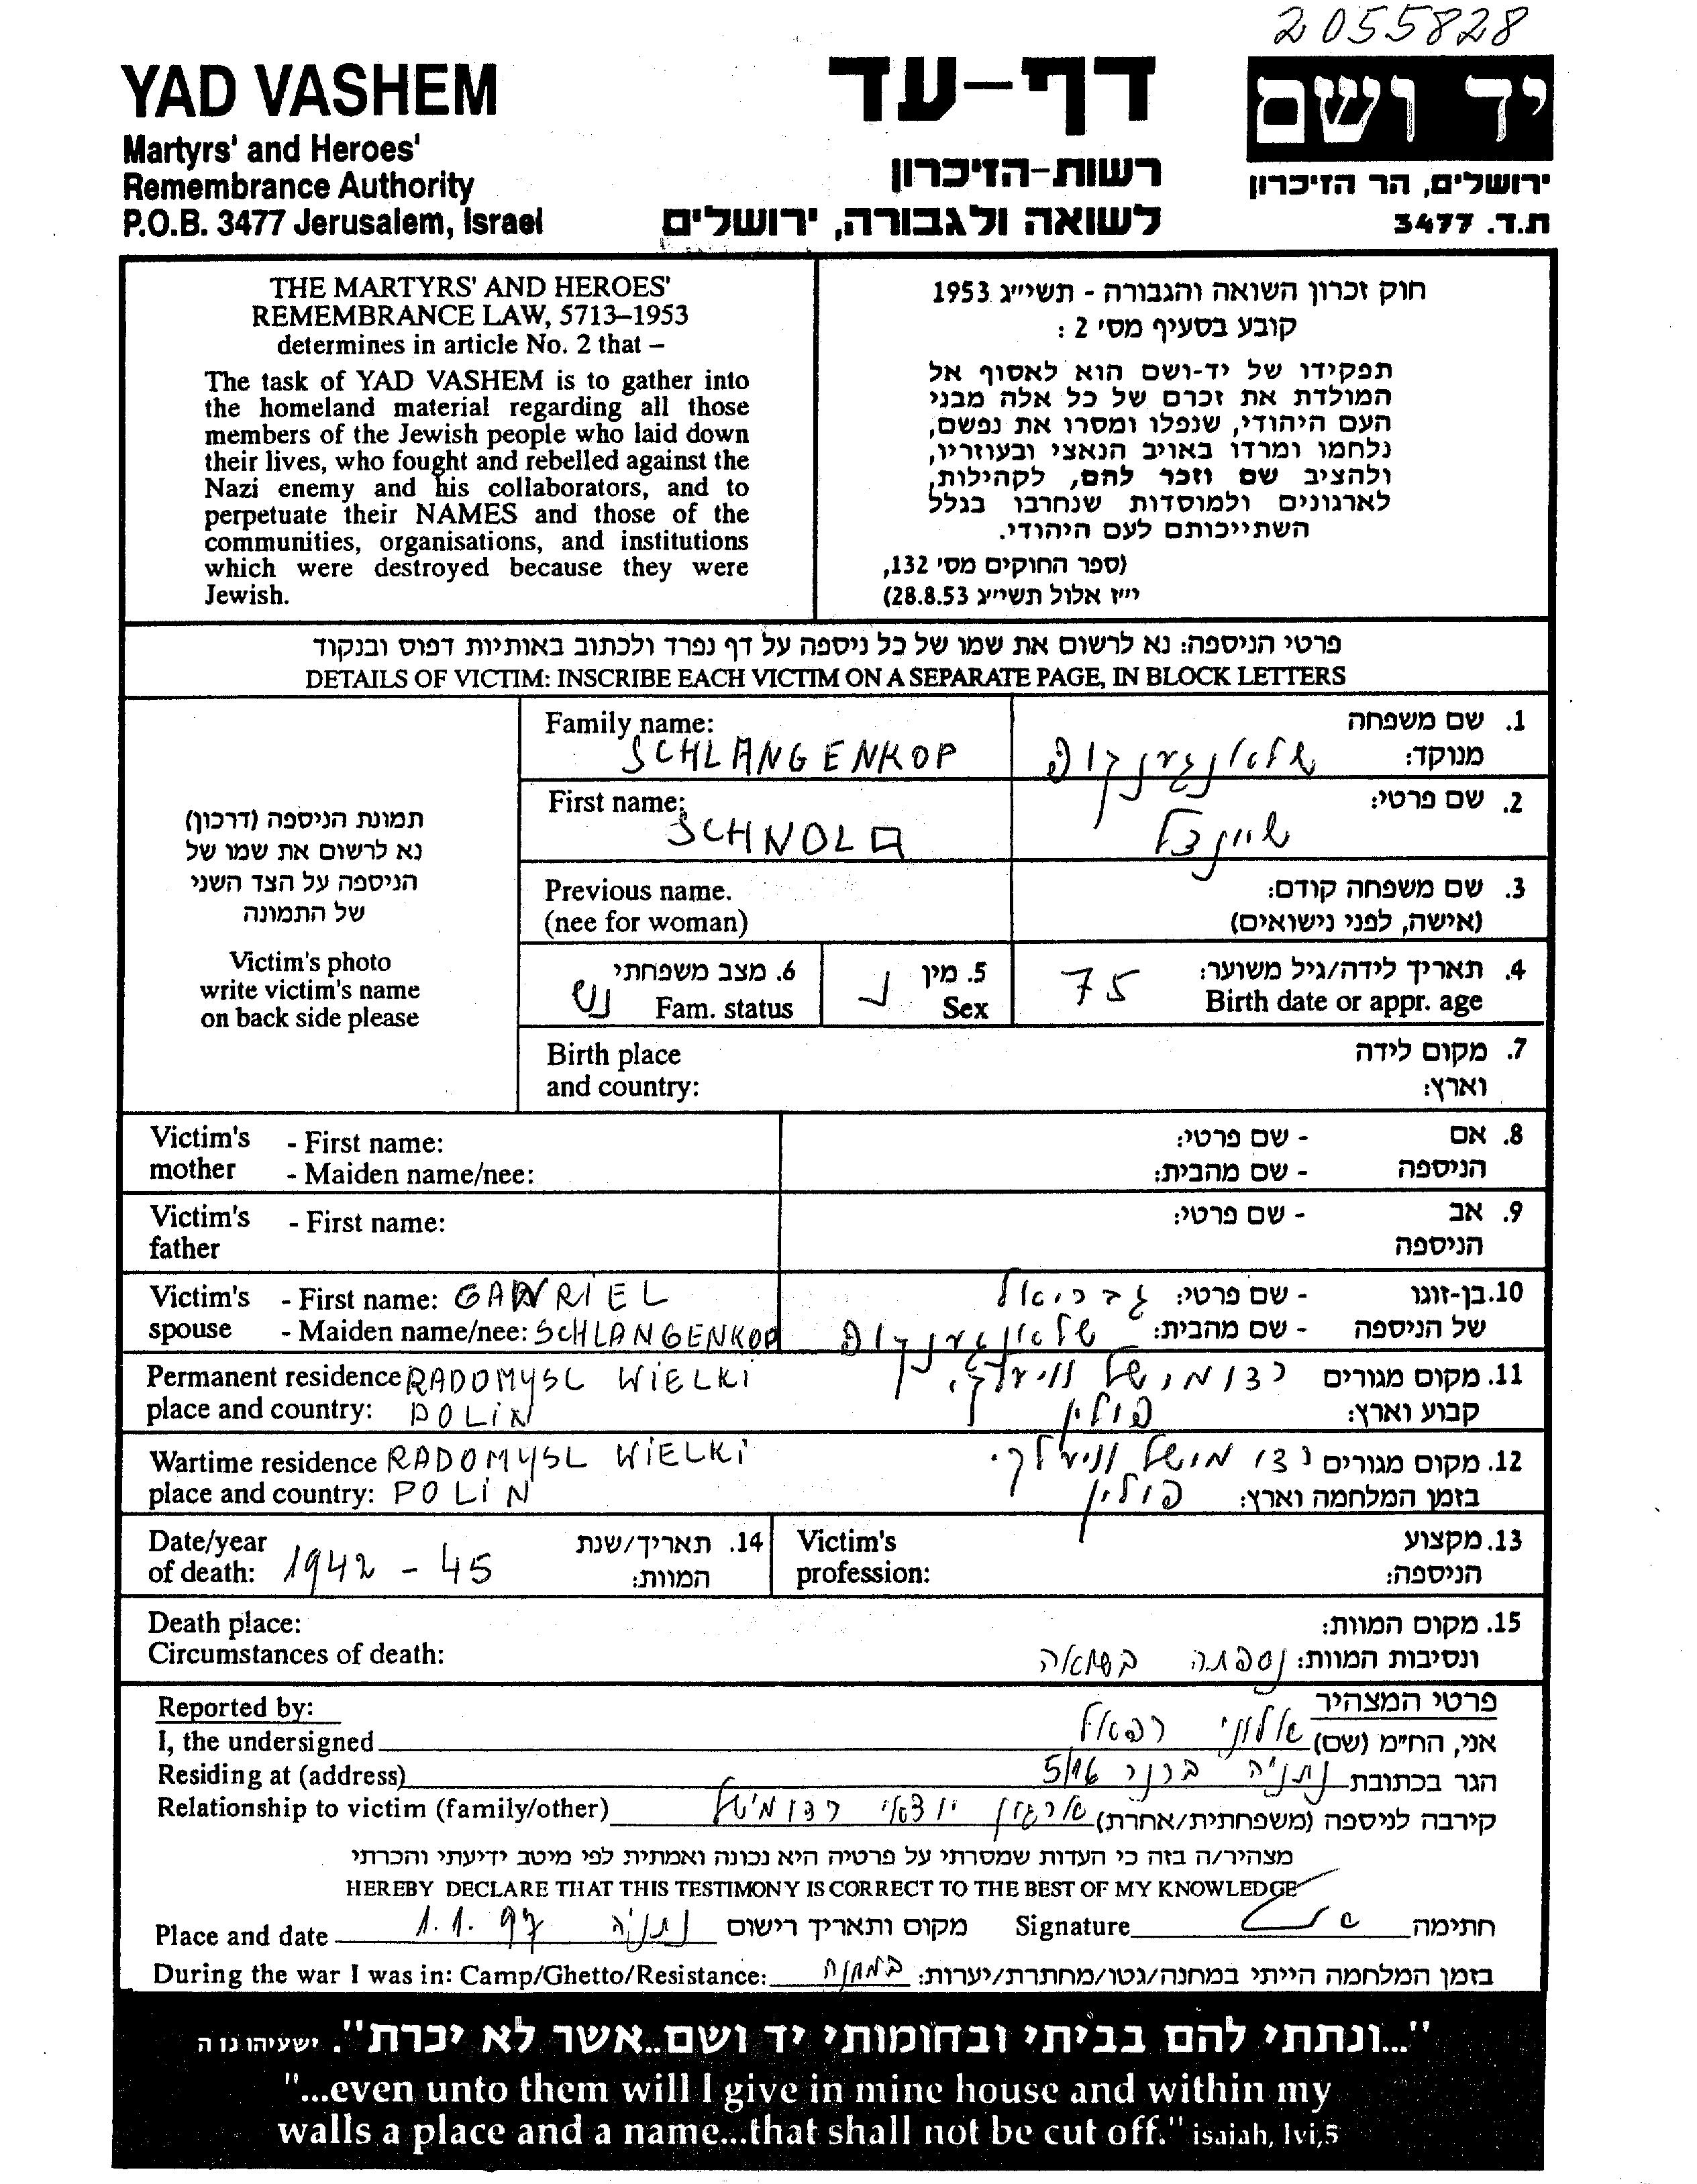 2055828
YAD VASHEM
Martyrs' and Heroes'
Remembrance Authority
P.O.B. 3477 Jerusalem, Israel
דף-עד
רשות-הזיכרון
לשואה ולגבורה, ירושלים
יד ושם
ירושלים, הר הזיכרון
ת.ד. 3477
THE MARTYRS' AND HEROES'
REMEMBRANCE LAW, 5713–1953
determines in article No. 2 that –
The task of YAD VASHEM is to gather into
the homeland material regarding all those
members of the Jewish people who laid down
their lives, who fought and rebelled against the
Nazi enemy and his collaborators, and to
perpetuate their NAMES and those of the
communities, organisations, and institutions
which were destroyed because they were
Jewish.
חוק זכרון השואה והגבורה - תשי"ג 1953
קובע בסעיף מס' 2 :
תפקידו של יד-ושם הוא לאסוף אל
המולדת את זכרם של כל אלה מבני
העם היהודי, שנפלו ומסרו את נפשם,
נלחמו ומרדו באויב הנאצי ובעוזריו,
ולהציב שם וזכר להם, לקהילות,
לארגונים ולמוסדות שנחרבו בגלל
השתייכותם לעם היהודי.
(ספר החוקים מס' 132,
י"ז אלול תשי"ג 28.8.53)
פרטי הניספה: נא לרשום את שמו של כל ניספה על דף נפרד ולכתוב באותיות דפוס ובנקוד
DETAILS OF VICTIM: INSCRIBE EACH VICTIM ON A SEPARATE PAGE, IN BLOCK LETTERS
תמונת הניספה (דרכון)
נא לרשום את שמו של
הניספה על הצד השני
של התמונה
Victim's photo
write victim's name
on back side please
Family name: 1. שם משפחה
SCHLANGENKOP שלאנגענקופ מנוקד:
First name: 2. שם פרטי:
SCHNOLA שיינדל
Previous name. 3. שם משפחה קודם:
(nee for woman) (אישה, לפני נישואים)
6. מצב משפחתי 5. מין 4. תאריך לידה/גיל משוער:
נש Fam. status נ Sex 75 Birth date or appr. age
Birth place 7. מקום לידה
and country: וארץ:
Victim's - First name: - שם פרטי: 8. אם
mother - Maiden name/nee: - שם מהבית: הניספה
Victim's - First name: - שם פרטי: 9. אב
father הניספה
Victim's - First name: GAVRIEL גבריאל - שם פרטי: 10. בן-זוגו
spouse - Maiden name/nee: SCHLANGENKOP שלאנגענקופ - שם מהבית: של הניספה
Permanent residence RADOMYSL WIELKI רדומישל וויעלקי 11. מקום מגורים
place and country: POLIN פולין קבוע וארץ:
Wartime residence RADOMYSL WIELKI רדומישל וויעלקי 12. מקום מגורים
place and country: POLIN פולין בזמן המלחמה וארץ:
Date/year 14. תאריך/שנת Victim's 13. מקצוע
of death: 1942 - 45 המוות: profession: הניספה:
Death place: 15. מקום המוות:
Circumstances of death: ונסיבות המוות: נספתה בשואה
Reported by: פרטי המצהיר
I, the undersigned אני, הח"מ (שם) אלוני רפאל
Residing at (address) הגר בכתובת נתניה ברנר 5/16
Relationship to victim (family/other) קירבה לניספה (משפחתית/אחרת) ארגון יוצאי רדומישל
מצהיר/ה בזה כי העדות שמסרתי על פרטיה היא נכונה ואמתית לפי מיטב ידיעתי והכרתי
HEREBY DECLARE THAT THIS TESTIMONY IS CORRECT TO THE BEST OF MY KNOWLEDGE
Place and date 1.1.97 נתניה מקום ותאריך רישום Signature חתימה
During the war I was in: Camp/Ghetto/Resistance: במחנה בזמן המלחמה הייתי במחנה/גטו/מחתרת/יערות:
"...ונתתי להם בביתי ובחומותי יד ושם..אשר לא יכרת". ישעיהו נו ה
"...even unto them will I give in mine house and within my
walls a place and a name...that shall not be cut off." isaiah, lvi,5